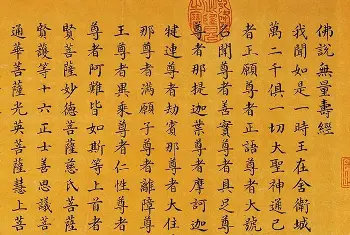 佛說無量壽經
我聞如是一時王在舍衛城
萬二千俱一切大聖神通已
者正願尊者正語尊者大號
名聞尊者善實尊者具足尊
尊者那提迦葉尊者摩訶迦
犍連尊者劫賓那尊者大住
那尊者滿願子尊者離障尊
王尊者異乘尊者仁性尊者
尊者阿難皆如斯等上首者
賢菩薩妙德菩薩慈氏菩薩
賢護等十六正士善思議菩
通華菩薩光英菩薩慧上菩